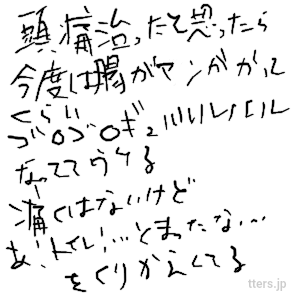 頭痛治ったと思ったら
今度は腸がヤンがかって
くらい
ゴロゴロギュルルルル
なっててうける
痛くはないけど
あ!トイレ!…とまったな…
をくりかえしてる
tters.jp